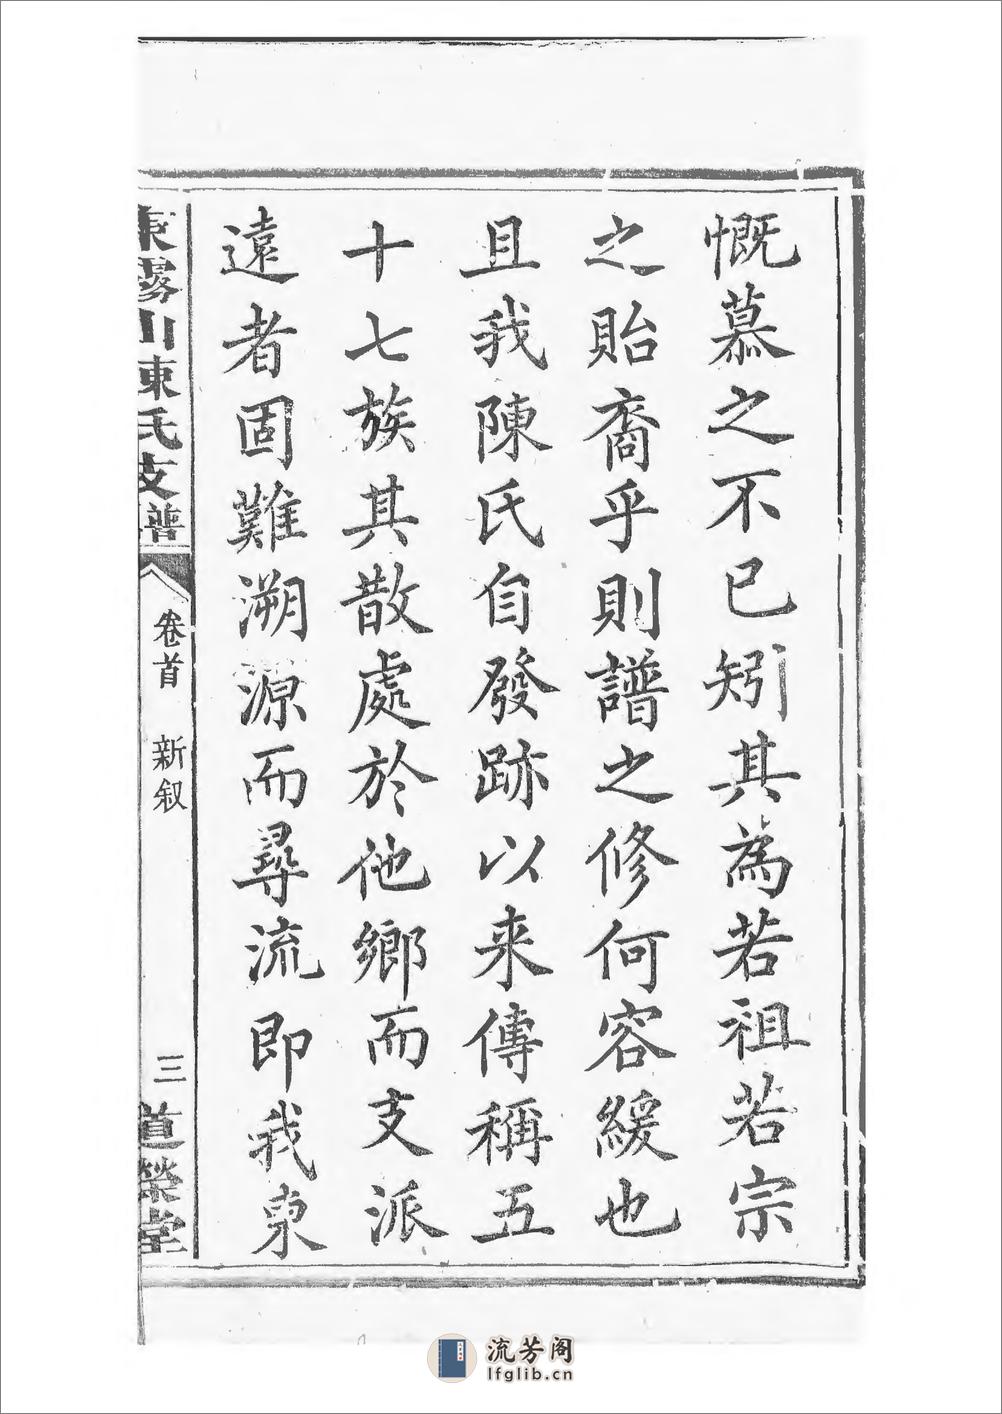 慨慕之不已矧其為若祖若宗
之貽裔乎則譜之修何容緩也
且我陳氏自發跡以来傳稱五
十七族其散處於他鄉而支派
遠者固難溯源而尋流即我東
東霧山陳氏支譜
卷首 新叙
三
道榮堂
流芳阁
lfglib.cn